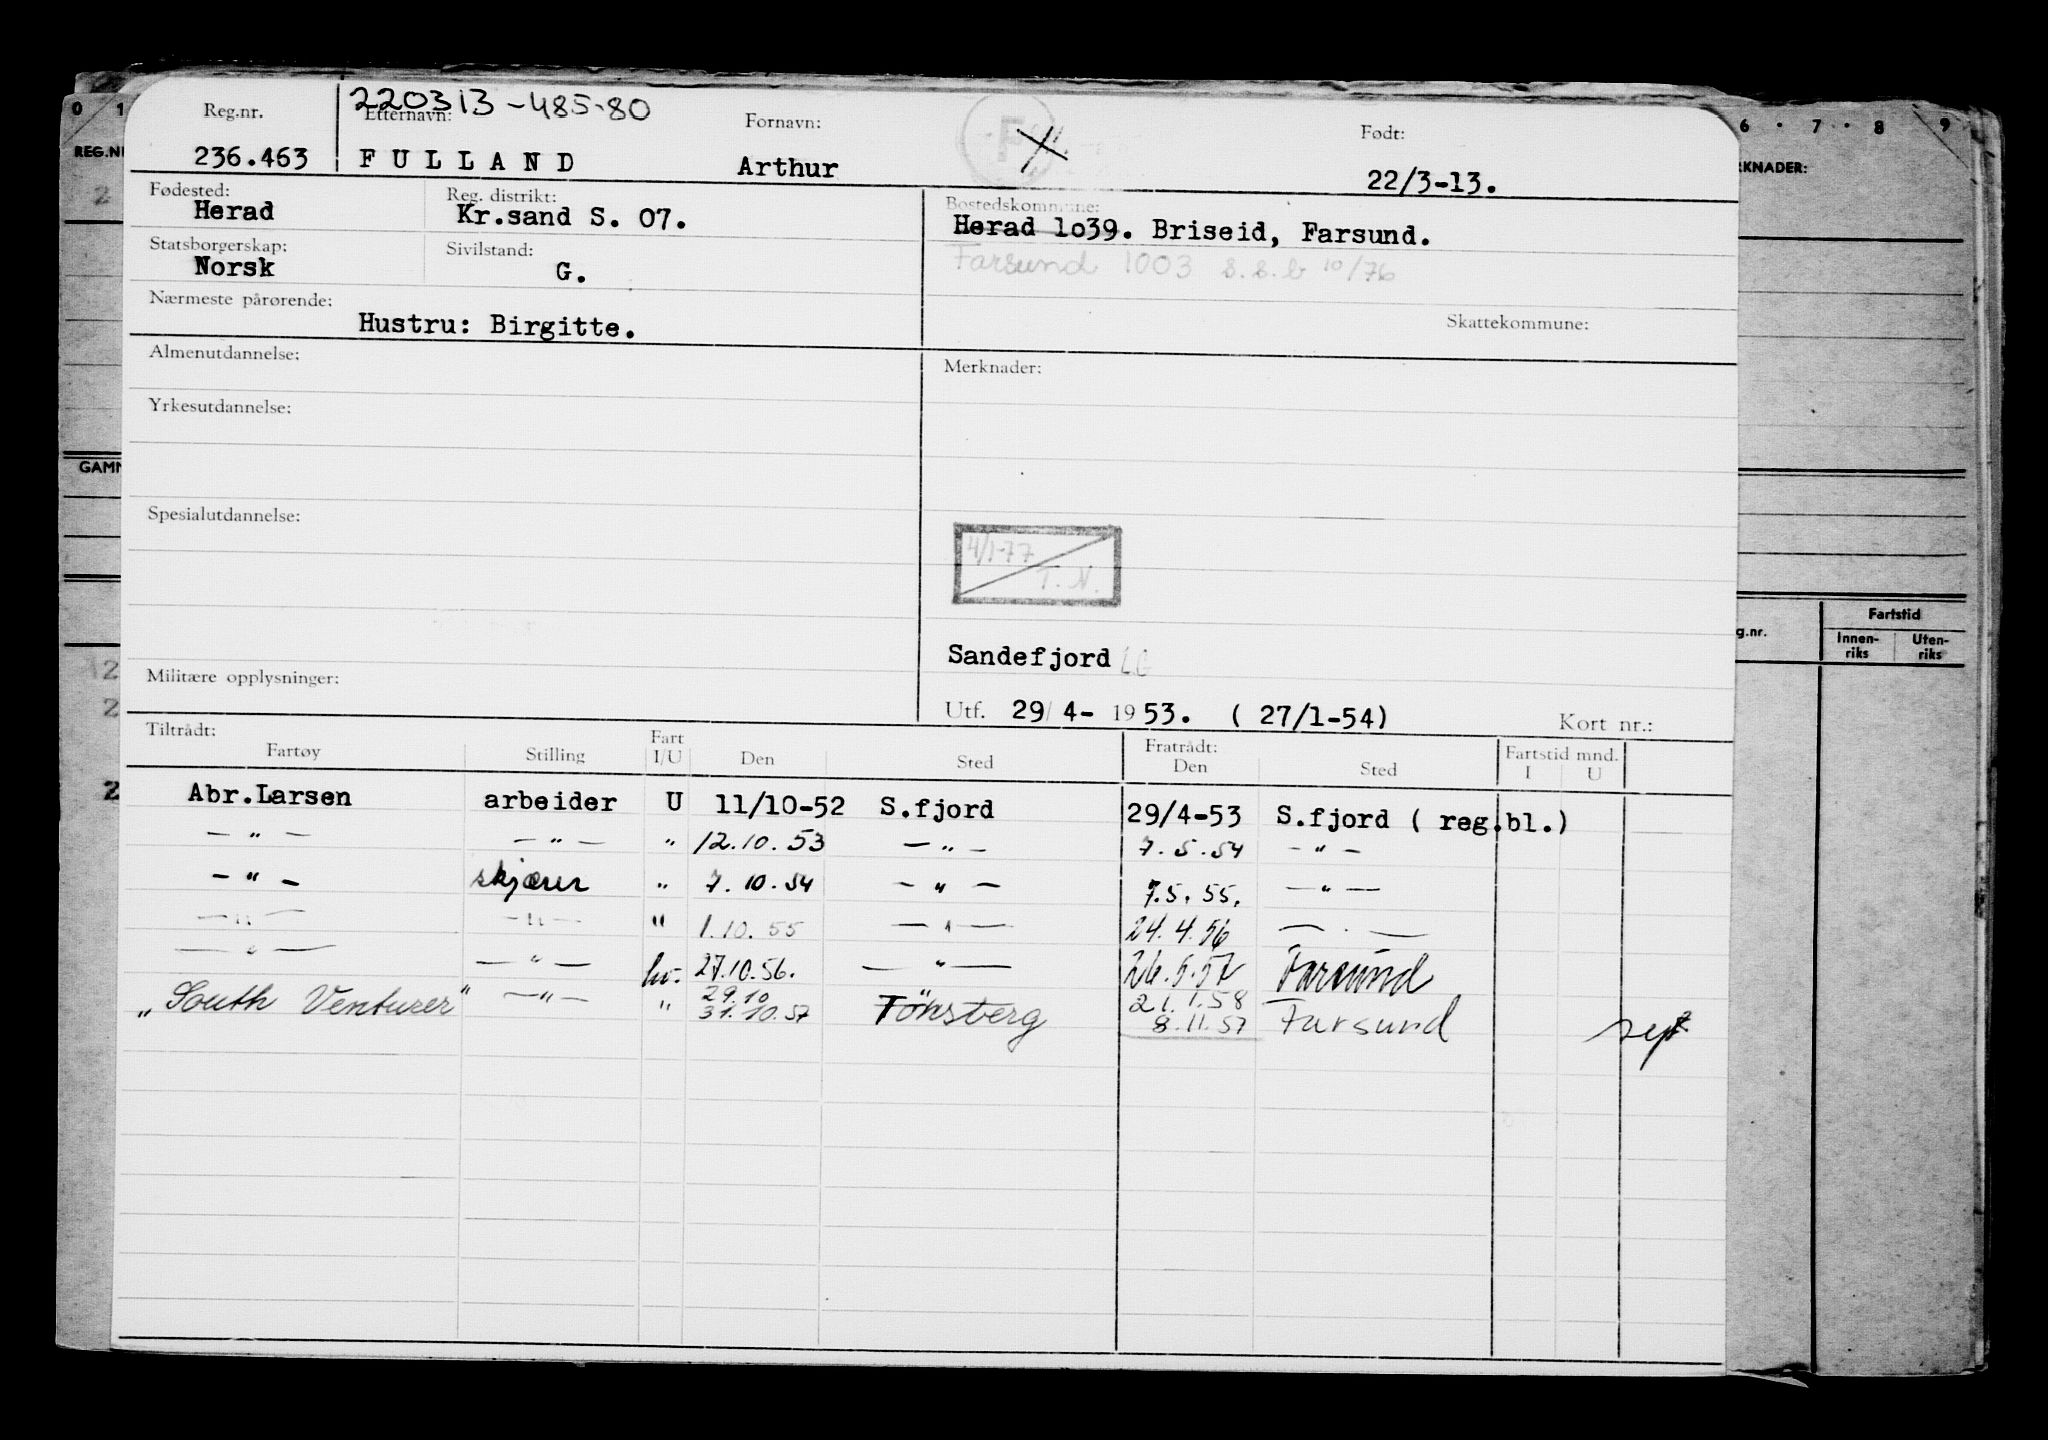 220313-485-80
Reg.nr. Etternavn: Fornavn: Født:
236.463 FULLAND Arthur 22/3-13.
Fødested: Reg. distrikt: Bostedskommune:
Herad Kr.sand S. 07. Herad 1o39. Briseid, Farsund.
Statsborgerskap: Sivilstand:
Norsk G. Farsund 1003 s.s.b 10/76
Nærmeste pårørende: Skattekommune:
Hustru: Birgitte.
Almenutdannelse: Merknader:
Yrkesutdannelse:
Spesialutdannelse:
4/1-77
T. N.
Sandefjord
Militære opplysninger:
Utf. 29/ 4- 1953. ( 27/1-54) Kort nr.:
Tiltrådt: Fratrådt: Fartstid mnd.
Fartøy Stilling Fart I/U Den Sted Den Sted I U
Abr.Larsen arbeider U 11/10-52 S.fjord 29/4-53 S.fjord ( reg.bl.)
— " — — " — " 12.10.53 — " — 7.5.54 — " —
— " — skjærer " 7.10.54 — " — 7.5.55. — " —
— " — — " — " 1.10.55 — " — 24.4.56 — " —
— " — — " — hv. 27.10.56. — " — 26.5.57 Farsund
"South Venturer" — " — " 29.10 31.10.57 Tönsberg 21.1.58 8.11.57 Farsund
0 1 6 · 7 · 8 9
REG.N
RKNADER:
GAM
g.nr. Fartstid
Innen-riks Uten-riks